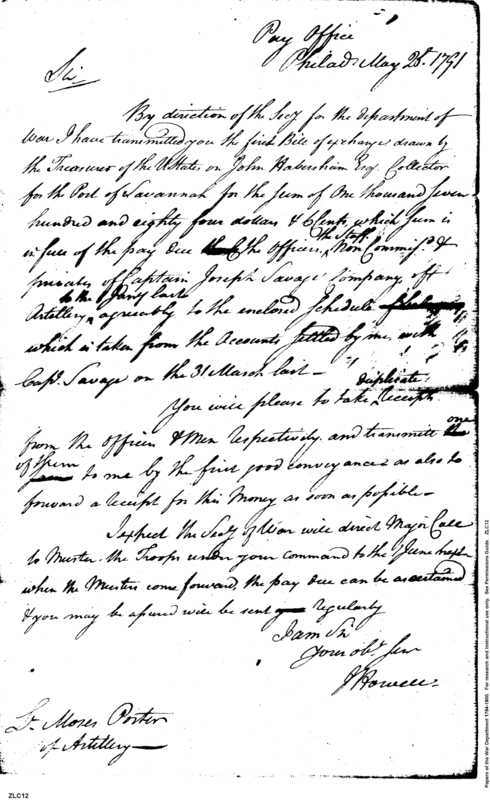 Pay Office
Philada May 28th 1791
Sir
By direction of the Secy for the department of
War I have transmitted you the first Bill of exchange drawn by
the Treasurer of the UStates on John Habersham Esq. Collector
for the Port of Savannah for the sum of One thousand seven
hundred and eighty four dollars & Cents, which sum is
in full of the pay due the Officers, the Staff, Non Commissd. &
privates of Captain Joseph Savage's Company of
Artillery, to the 1 Jany last agreeably to the enclosed Schedule
which is taken from the Accounts settled by me with
Capt. Savage on the 31 March last –
You will please to take duplicate receipts
from the Officers & Men respectively and transmit one
of them to me by the first good conveyance as also to
forward a receipt for this Money as soon as possible –
I expect the Secy of War will direct Major Call
to Muster the Troops under your command to the 1 June next
when the Musters come forward, the pay due can be ascertained
& you may be assured will be sent regularly
I am Sir
Your obt. Serv
J Howell
Lt. Moses Porter
of Artillery
ZLC12
Papers of the War Department 1784-1800. For research and instructional use only. See Permissions Guide. ZLC12